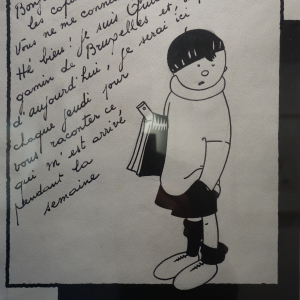 Bonj
les copai
Vous ne me conna
Hé bien! je suis Quic
gamin de Bruxelles et,
d'aujourd'hui, je serai ici
chaque jeudi pour
vous raconter ce
qui m'est arrivé
pendant la
semaine